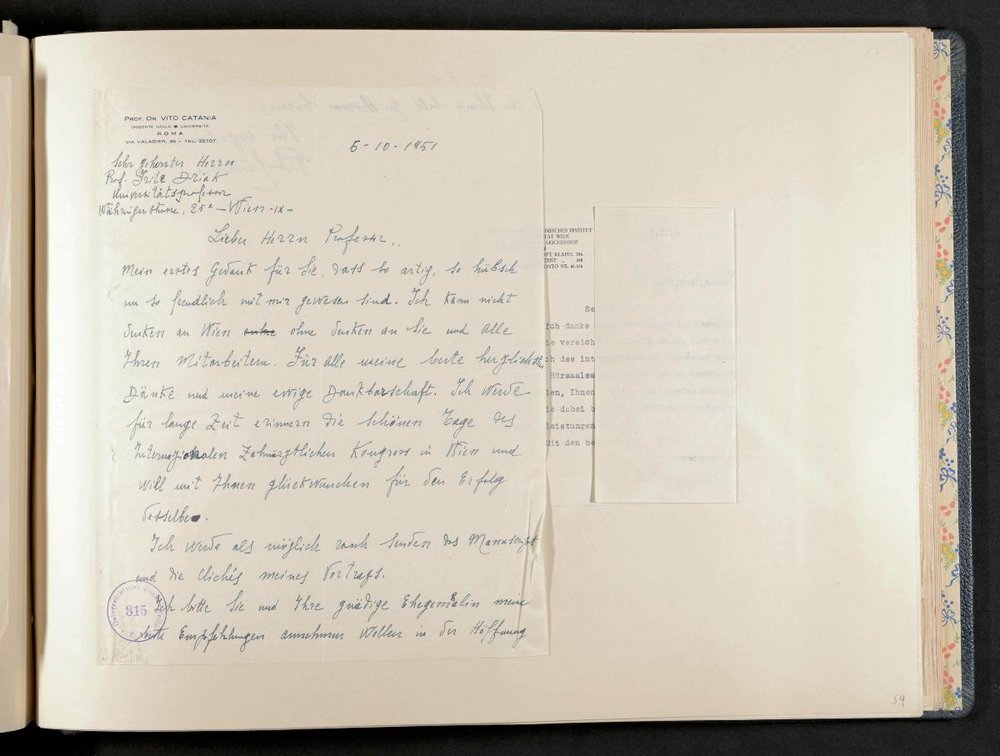 PROF. DR. VITO CATANIA
DOCENTE NELLA UNIVERSITÀ
ROMA
VIA VALADIER, 36 - TEL. 35707
5-10-1951
Sehr geherter Herrn
Prof. Fritz Driak
Universitätsprofessor
Währingerstrasse, 25a - Wien-IX-
Lieber Herrn Professor,.
Mein erstes Gedank für Sie, dass so artig, so hübsch
un so freudlich mit mir gewesen sind. Ich kann nicht
denken an Wien ohne denken an Sie und alle
Ihren Mitarbeitern. Für alle meine beste herzlichste
Dänke und meine ewige Dankbarschaft. Ich werde
für lange Zeit erinnern die schönen Tage des
Internazionalen Zahnärztlichen Kongress in Wien und
will mit Ihnen glückwunschen für den Erfolg
desselben.
Ich werde als möglich rasch senden das Manuskript
und die Clichés meines Vortrags.
Ich bitte Sie und Ihre gnädige Ehegemälin meine
beste Empfehlungen annehmen wollen in der Höffnung
315
RISCHES INSTITUT
TÄT WIEN
Be
Ich danke
ie versich
ch des int
Hörsaales
en, Ihnen
ie dabei b
leistungen
Mit den be
59